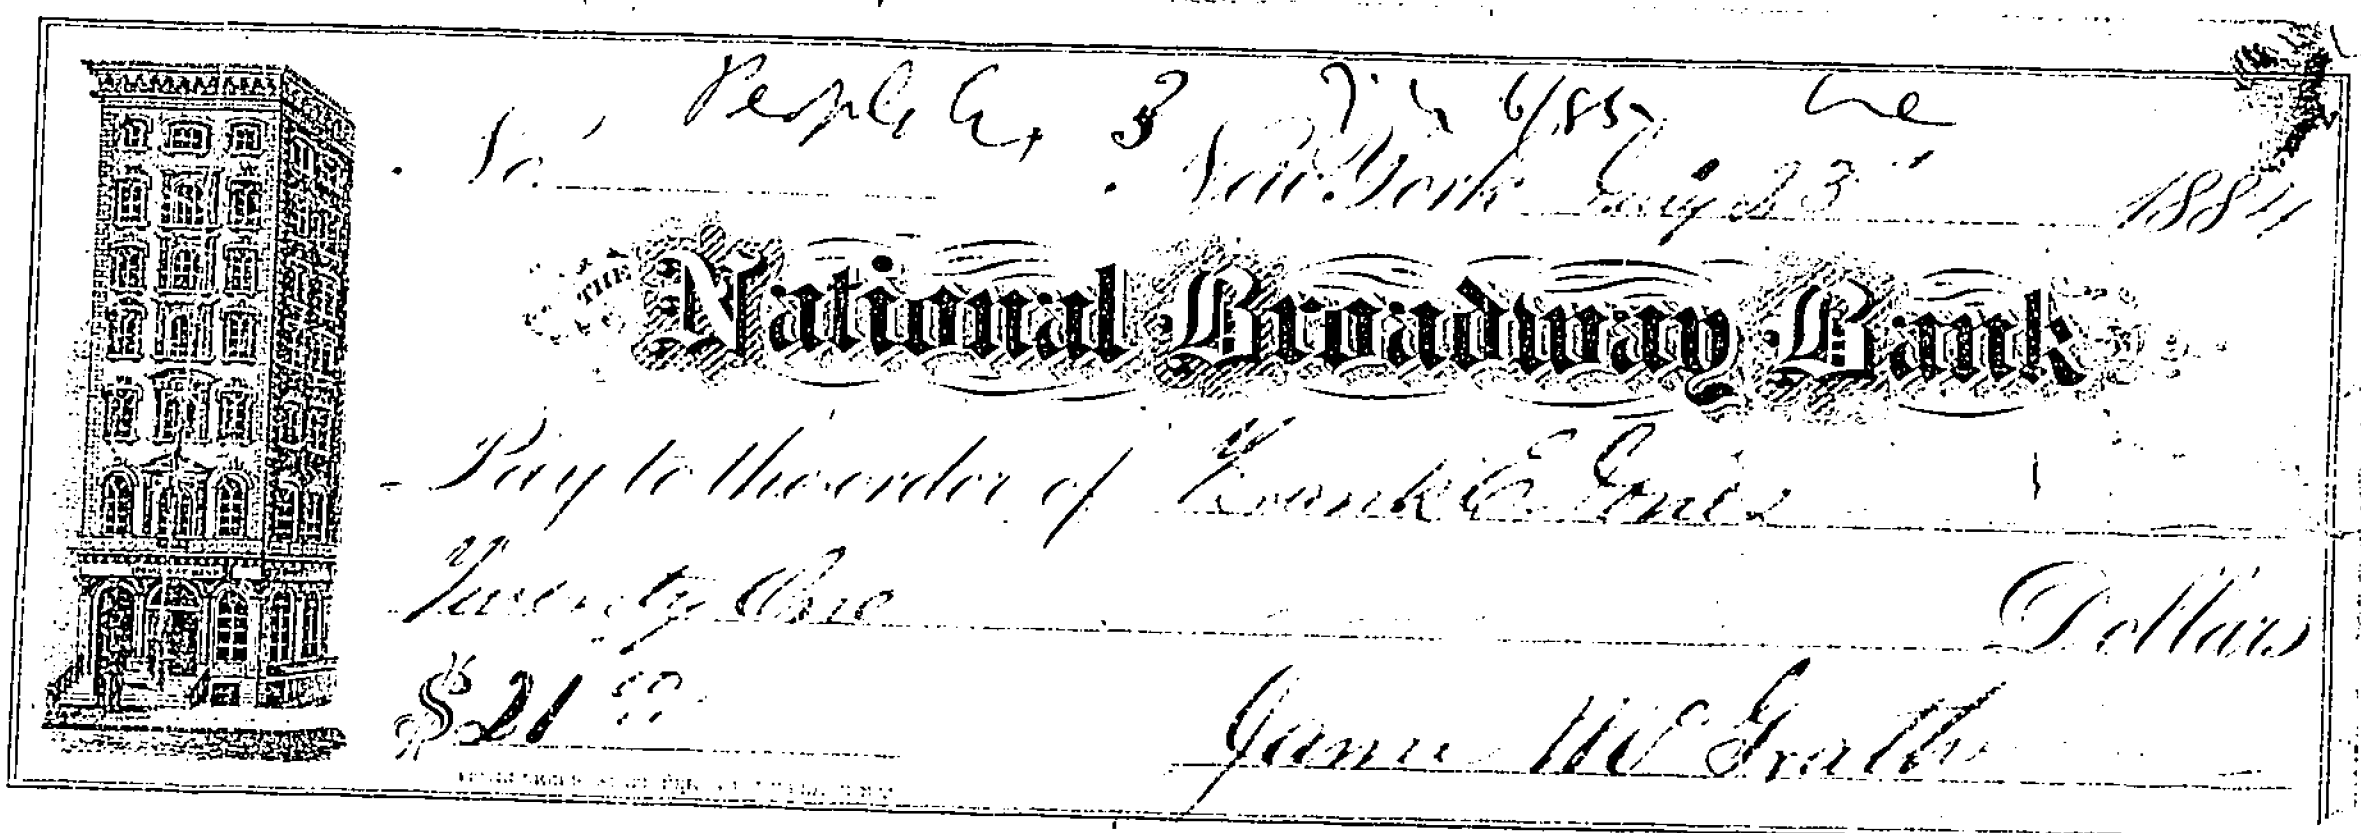 People Ex 3
No. New York Aug 23 1884
THE National Broadway Bank
Pay to the order of Frank E. Jones
Twenty One Dollars
$21 00
James McGrath